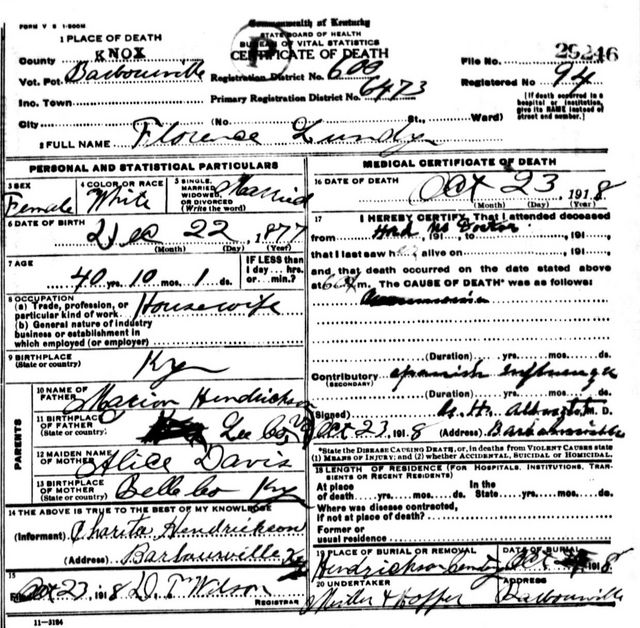 FORM V S 1-500M
Commonwealth of Kentucky
STATE BOARD OF HEALTH
BUREAU OF VITAL STATISTICS
CERTIFICATE OF DEATH
1 PLACE OF DEATH
County KNOX
Vot. Pct. Barbourville
Inc. Town
City (No. St., Ward)
Registration District No. 609
Primary Registration District No. 6473
File No. 25246
Registered No. 94
[If death occurred in a hospital or institution, give its NAME instead of street and number.]
2 FULL NAME Florence Lundy
PERSONAL AND STATISTICAL PARTICULARS
3 SEX Female
4 COLOR OR RACE White
5 SINGLE, MARRIED, WIDOWED, OR DIVORCED (Write the word) Married
6 DATE OF BIRTH Dec 22, 1877
(Month) (Day) (Year)
7 AGE 40 yrs. 10 mos. 1 ds.
IF LESS than 1 day... hrs. or... min.?
8 OCCUPATION
(a) Trade, profession, or particular kind of work Housewife
(b) General nature of industry business or establishment in which employed (or employer)
9 BIRTHPLACE (State or country) Ky
PARENTS
10 NAME OF FATHER Marion Hendrickson
11 BIRTHPLACE OF FATHER (State or country) Lee Co, Va
12 MAIDEN NAME OF MOTHER Alice Davis
13 BIRTHPLACE OF MOTHER (State or country) Bell co Ky
14 THE ABOVE IS TRUE TO THE BEST OF MY KNOWLEDGE
(Informant) Hendrickson
(Address) Barbourville Ky
15 Oct 23, 1918 Wilson
REGISTRAR
11-3184
MEDICAL CERTIFICATE OF DEATH
16 DATE OF DEATH Oct 23 1918
(Month) (Day) (Year)
17 I HEREBY CERTIFY, That I attended deceased
from Had No Doctor, 191, to, 191,
that I last saw h alive on, 191,
and that death occurred on the date stated above
at m. The CAUSE OF DEATH* was as follows:
(Duration) yrs. mos. ds.
Contributory (SECONDARY) Spanish Influenza
(Duration) yrs. mos. ds.
Signed M. D.
Oct 23, 1918 (Address) Barbourville
*State the DISEASE CAUSING DEATH, or, in deaths from VIOLENT CAUSES state (1) MEANS OF INJURY; and (2) whether ACCIDENTAL, SUICIDAL or HOMICIDAL.
18 LENGTH OF RESIDENCE (FOR HOSPITALS, INSTITUTIONS, TRANSIENTS OR RECENT RESIDENTS)
At place of death yrs. mos. ds. In the State yrs. mos. ds.
Where was disease contracted, if not at place of death?
Former or usual residence
19 PLACE OF BURIAL OR REMOVAL Hendrickson
DATE OF BURIAL Oct 1918
20 UNDERTAKER Hopper
ADDRESS Barbourville